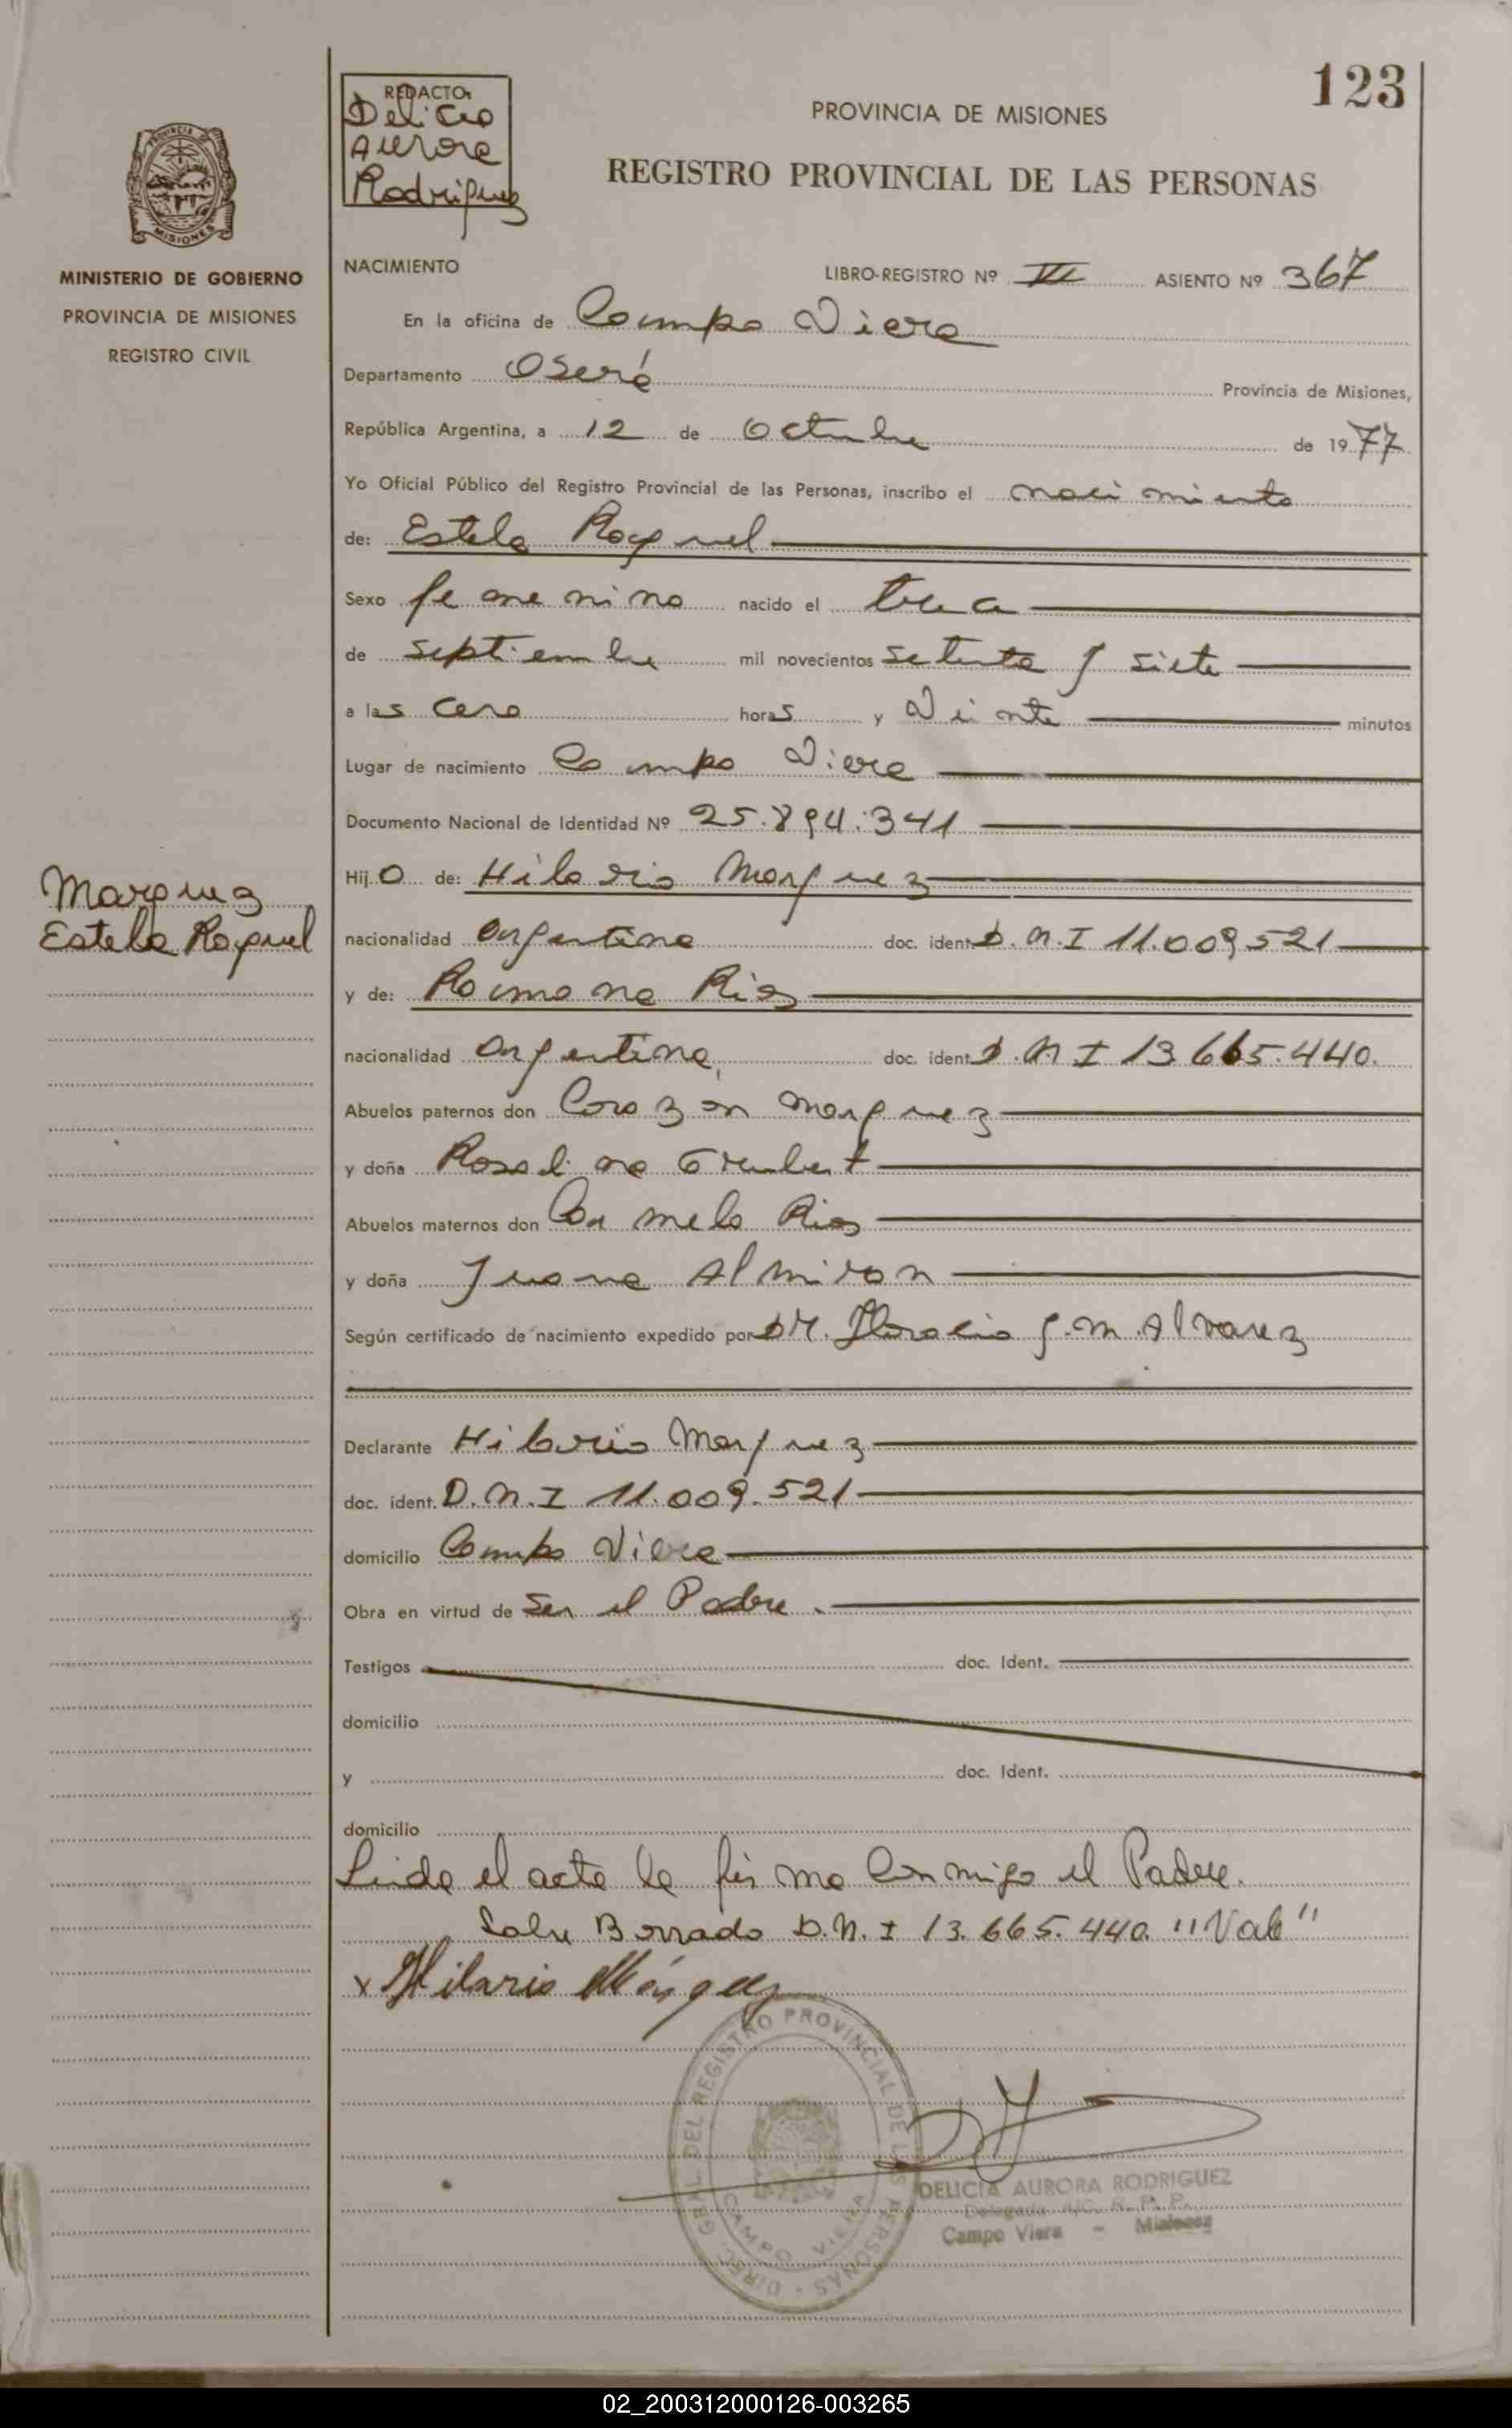 123
REDACTO:
Delicia
Aurora
Rodriguez
PROVINCIA DE MISIONES
REGISTRO PROVINCIAL DE LAS PERSONAS
PROVINCIA DE
MISIONES
MINISTERIO DE GOBIERNO
PROVINCIA DE MISIONES
REGISTRO CIVIL
NACIMIENTO LIBRO-REGISTRO Nº ASIENTO Nº 367
En la oficina de Campo Viera
Departamento Oberá Provincia de Misiones,
República Argentina, a 12 de Octubre de 1977
Yo Oficial Público del Registro Provincial de las Personas, inscribo el nacimiento
de: Estela Raquel
Sexo femenino nacido el trece
de septiembre mil novecientos setenta y siete
a las cero horas y veinte minutos
Lugar de nacimiento Campo Viera
Documento Nacional de Identidad Nº 25.894.341
Hijo de: Hilario Marquez
Marquez
Estela Raquel
nacionalidad argentina doc. ident. D.N.I 11.009.521
y de: Ramona Rios
nacionalidad argentina doc. ident. D.N.I 13.665.440.
Abuelos paternos don Corazon Marquez
y doña Rosalina
Abuelos maternos don Carmelo Rios
y doña Juana Almiron
Según certificado de nacimiento expedido por Dr. Horacio G.M. Alvarez
Declarante Hilario Marquez
doc. ident. D.N.I 11.009.521
domicilio Campo Viera
Obra en virtud de Ser el Padre.
Testigos doc. Ident.
domicilio
y doc. Ident.
domicilio
Leida el acta la firma conmigo el Padre.
Sobre Borrado D.N.I 13.665.440. "Vale"
x Hilario Márquez
DIREC. GRAL. DEL REGISTRO PROVINCIAL DE LAS PERSONAS
CAMPO VIERA
DELICIA AURORA RODRIGUEZ
Delegada R. P. P.
Campo Viera - Misiones
02_200312000126-003265